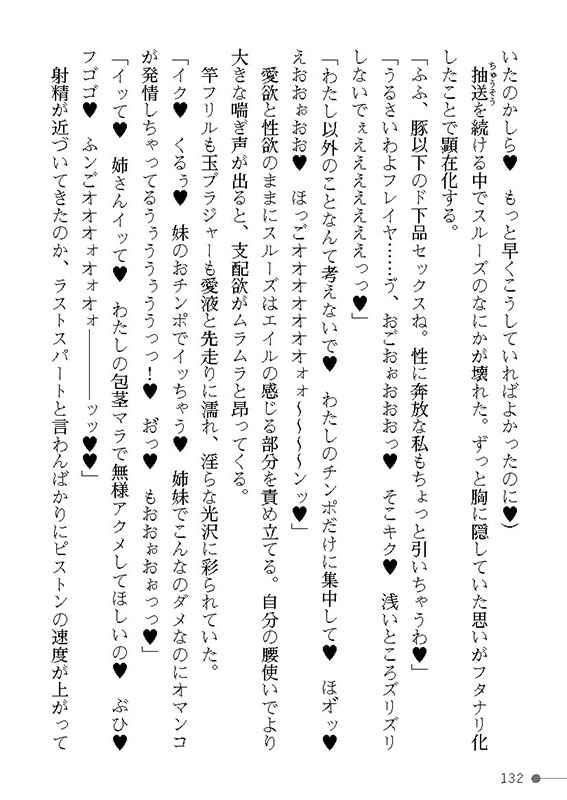 いたのかしら♥　もっと早くこうしていればよかったのに♥）
　抽送を続ける中でスルーズのなにかが壊れた。ずっと胸に隠していた思いがフタナリ化
ちゅうそう
したことで顕在化する。
「ふふ、豚以下のド下品セックスね。性に奔放な私もちょっと引いちゃうわ♥」
「うるさいわよフレイヤ……う゛、おごおぉおおおっ♥　そこキク♥　浅いところズリズリ
しないでぇええええええっっ♥」
「わたし以外のことなんて考えないで♥　わたしのチンポだけに集中して♥　ほオ゛ッ♥
えおおぉおお♥　ほっごオオオオオオオォォ～～～～ンッ♥」
　愛欲と性欲のままにスルーズはエイルの感じる部分を責め立てる。自分の腰使いでより
大きな喘ぎ声が出ると、支配欲がムラムラと昂ってくる。
　竿フリルも玉ブラジャーも愛液と先走りに濡れ、淫らな光沢に彩られていた。
「イク♥　くるぅ♥　妹のおチンポでイッちゃう♥　姉妹でこんなのダメなのにオマンコ
が発情しちゃってるうぅううぅううっっ！♥　お゛っ♥　もおおぉおぉっっ♥」
「イッて♥　姉さんイッて♥　わたしの包茎マラで無様アクメしてほしいの♥　ぶひ♥
フゴゴ♥　ふンごオオオォオォオォ―――ッッ♥♥」
　射精が近づいてきたのか、ラストスパートと言わんばかりにピストンの速度が上がって
132